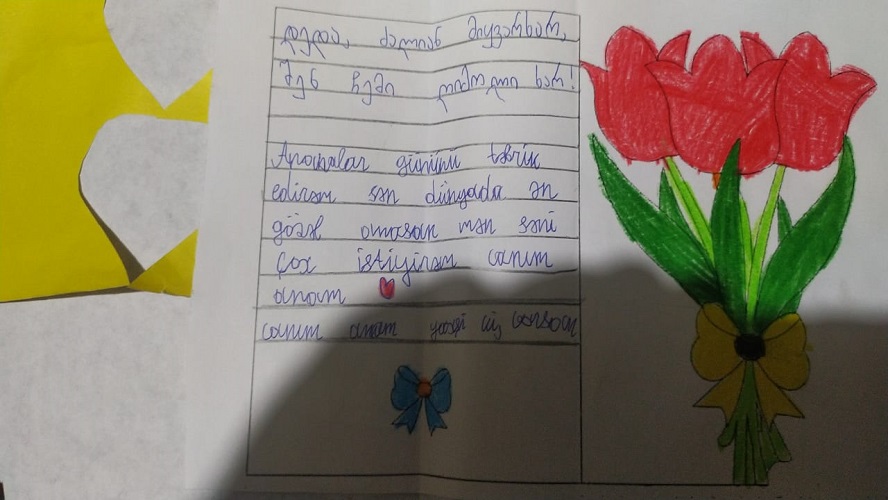 დედაა, ძალიან მიყვარხარ,
შენ ჩემი ხარ!
Anamalar gününü təbrik
edirəm sən dünyada ən
gözəl anasan mən səni
çox istiyirəm canım
anam
canım anam yaxşi